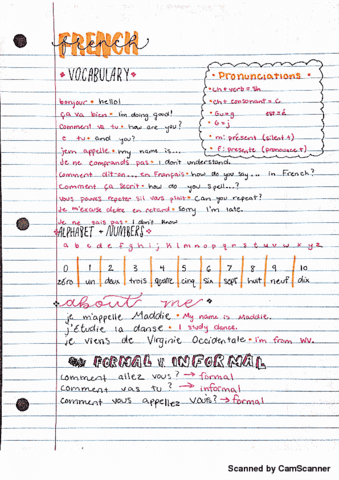 FRENCH
french
• VOCABULARY •
bonjour • hello!
ça va bien • i'm doing good!
Comment vas tu • how are you?
e tu • and you?
jem appelle • my name is...
Je ne comprends pas • I don't understand.
Comment dit-on... en Français • how do you say... in French?
Comment ça secrit • how do you spell...?
Vous pouves repeter sil vous plait • Can you repeat?
Je m'excuse d'etre en retard • Sorry I'm late.
Je ne sais pas • I don't know
• Pronunciations •
• ch + verb = sh
• ch + consonant = c
• Gu = g
• G = j
• m: présent (silent t)
• f: presente (pronounce t)
ALPHABET + NUMBERS
a b c d e f g h i j k l m n o p q r s t u v w x y z
0 1 2 3 4 5 6 7 8 9 10
zéro un deux trois quatre cinq six sept huit neuf dix
about me
je m'appelle Maddie • My name is Maddie.
j'Étudie la danse • I study dance.
je viens de Virginie Occidentale • I'm from WV.
FORMAL V. INFORMAL
comment allez vous? → formal
comment vas tu? → informal
comment vous appellez vous? → formal
Scanned by CamScanner